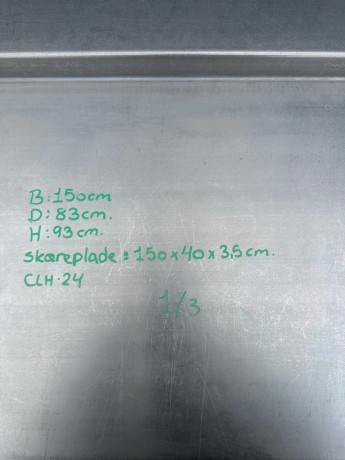 B:150cm
D:83cm.
H:93cm.
skæreplade: 150x40x3,5cm.
CLH·24
1/3